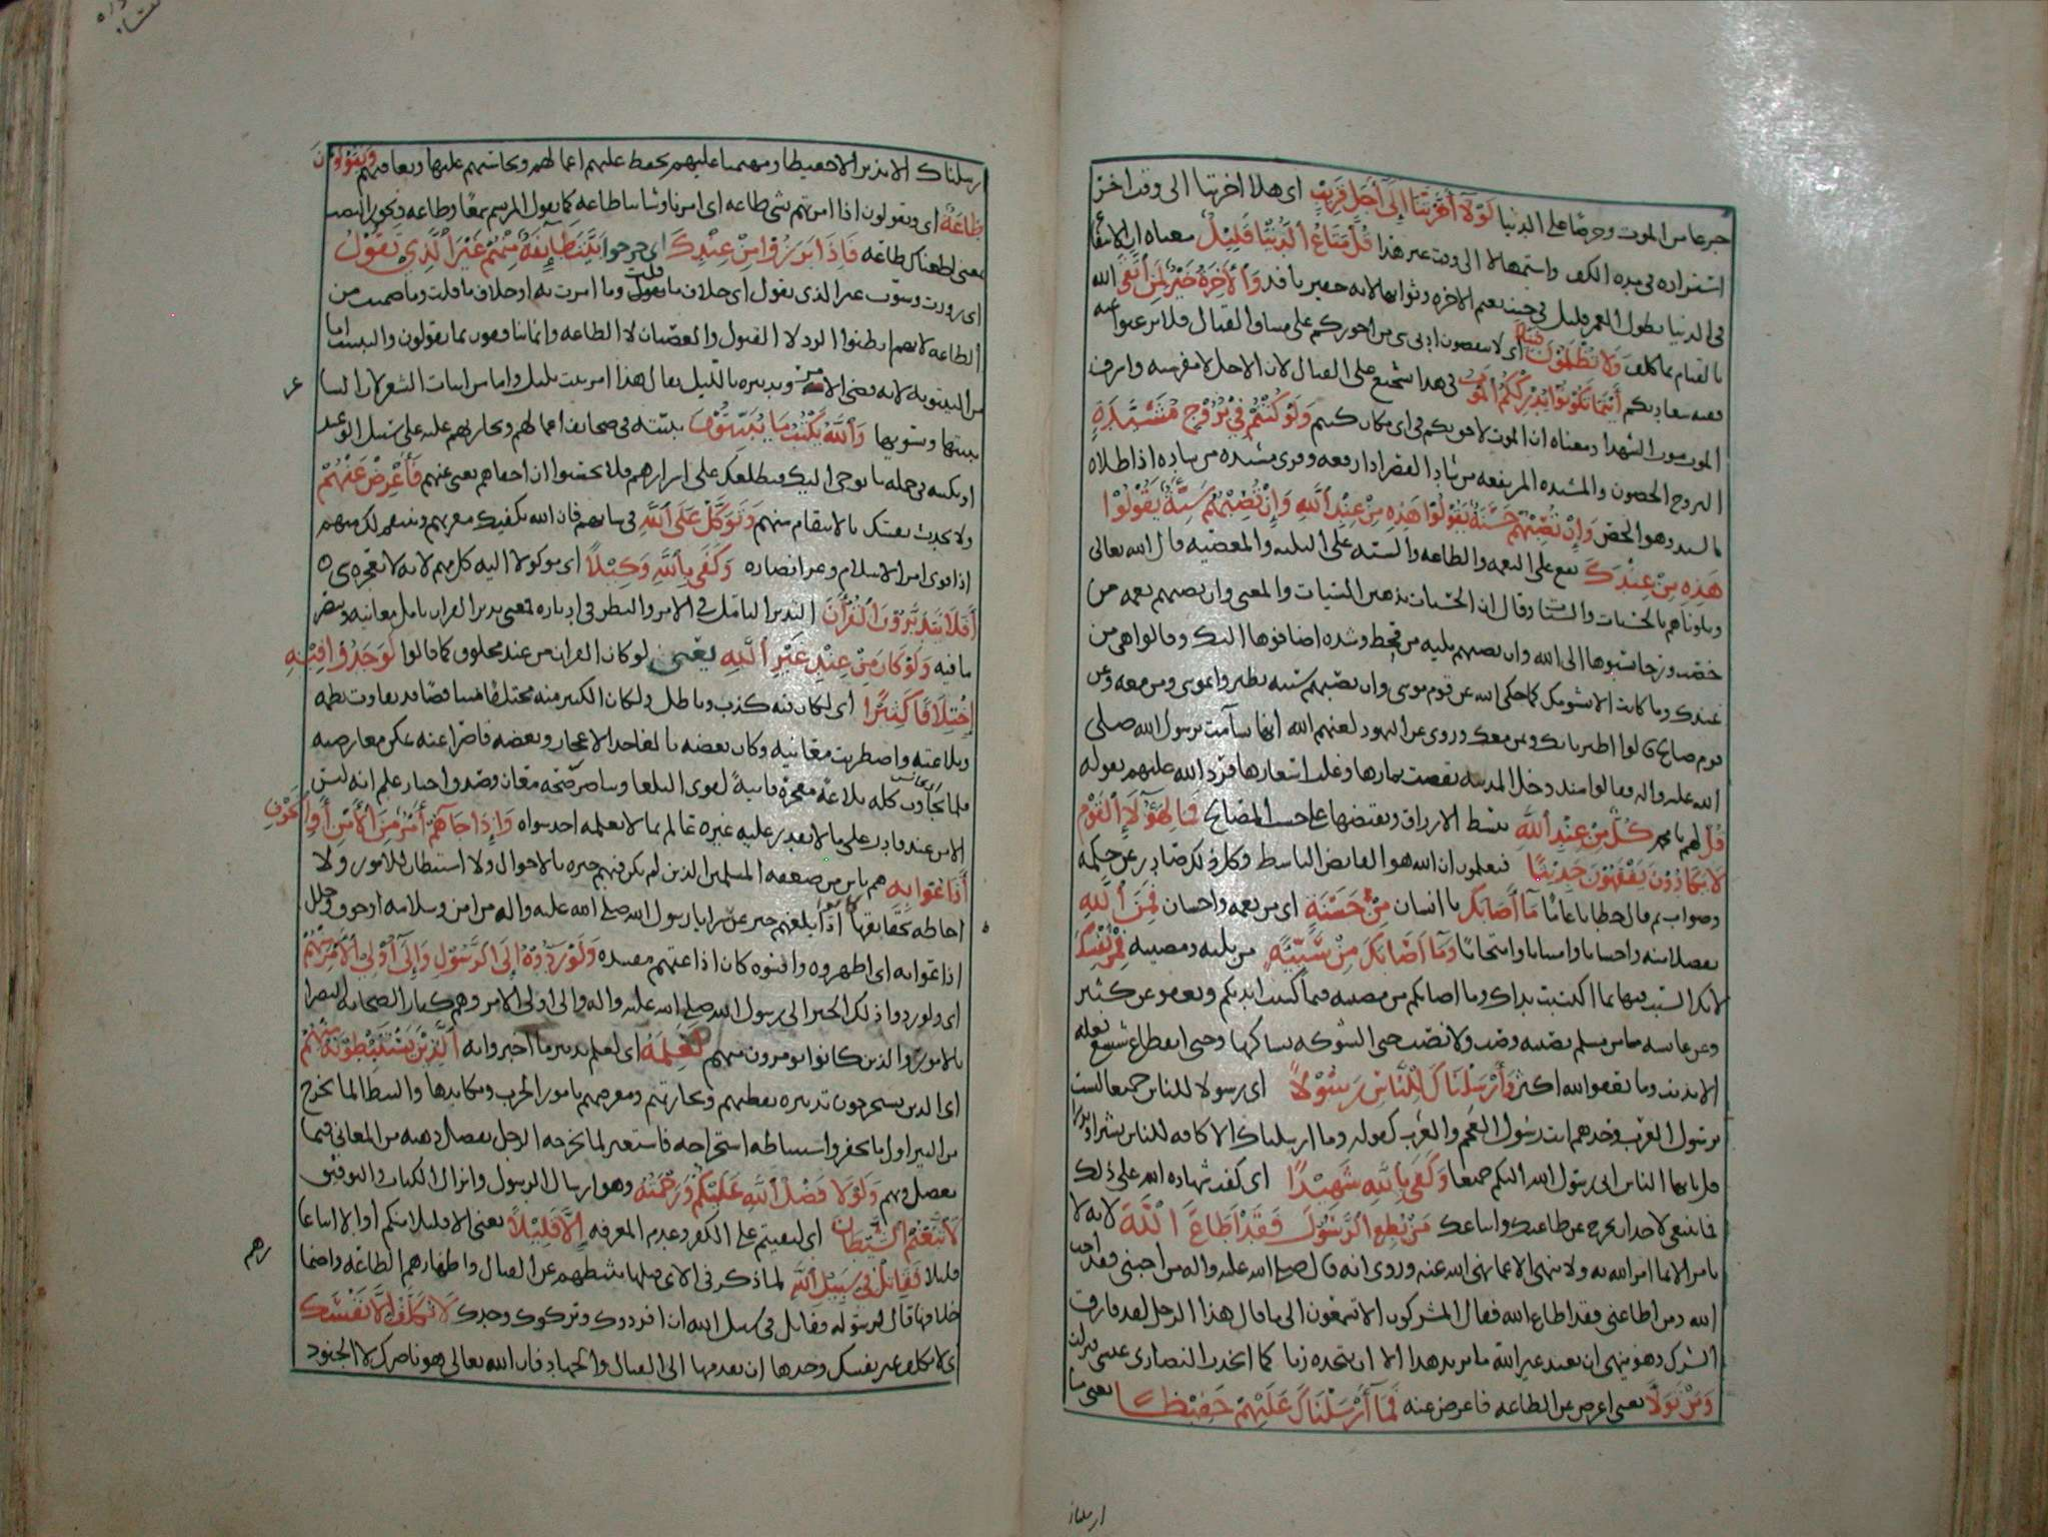 جزعا من الموت وحرصا على الدنيا لَوْلَا أَخَّرْتَنَا إِلَى أَجَلٍ قَرِيبٍ اى هلا اخرتنا الى وقت اخر
استزاده فى مده الكف واستمهالا الى وقت غير هذا قُلْ مَتَاعُ الدُّنْيَا قَلِيلٌ معناه ان
فى الدنيا بطول العمر قليل فى جنب نعيم الاخره وثوابها لانه حقير وَالْآخِرَةُ خَيْرٌ لِمَنِ اتَّقَى الله
بالقيام بما كلف وَلَا تُظْلَمُونَ فَتِيلًا اى لا تنقصون ادنى شى من اجوركم على مشاق القتال فلا ترغبوا عنه
أَيْنَمَا تَكُونُوا يُدْرِكْكُمُ الْمَوْتُ فى هذا تشجيع على القتال لان الاجل لا مفر منه واشرف
الموت موت الشهدا ومعناه ان الموت لاحق بكم فى اى مكان كنتم وَلَوْ كُنْتُمْ فِي بُرُوجٍ مُشَيَّدَةٍ
البروج الحصون والمشيده المرتفعه من شاد القصر اذا رفعه وقرى مشيده من شاده اذا طلاه
بالشيد وهو الجص وَإِنْ تُصِبْهُمْ حَسَنَةٌ يَقُولُوا هَذِهِ مِنْ عِنْدِ اللَّهِ وَإِنْ تُصِبْهُمْ سَيِّئَةٌ يَقُولُوا
هَذِهِ مِنْ عِنْدِكَ تقع على النعمه والطاعه والسيئه على البليه والمعصيه قال الله تعالى
وبلوناهم بالحسنات والسيئات وقال ان الحسنات يذهبن السيئات والمعنى وان تصبهم نعمه من
خصب ورخا نسبوها الى الله وان تصبهم بليه من قحط وشده اضافوها اليك وقالوا هى من
عندك وما كانت الا بشومك كما حكى الله عن قوم موسى وان تصبهم سيئه يطيروا بموسى ومن معه وعن
قوم صالح قالوا اطيرنا بك وبمن معك وروى عن اليهود لعنهم الله انها تشاءمت برسول الله صلى
الله عليه واله فقالوا منذ دخل المدينه نقصت ثمارها وغلت اسعارها فرد الله عليهم بقوله
قُلْ لهم يا محمد كُلٌّ مِنْ عِنْدِ اللَّهِ يبسط الارزاق ويقبضها على حسب المصالح فَمَالِ هَؤُلَاءِ الْقَوْمِ
لَا يَكَادُونَ يَفْقَهُونَ حَدِيثًا فيعلمون ان الله هو القابض الباسط وكل ذلك صادر عن حكمه
وصواب ثم قال خطابا عاما مَا أَصَابَكَ يا انسان مِنْ حَسَنَةٍ اى من نعمه واحسان فَمِنَ اللَّهِ
تفضلا منه واحسانا وامتنانا وامتحانا وَمَا أَصَابَكَ مِنْ سَيِّئَةٍ من بليه ومصيبه فَمِنْ نَفْسِكَ
لانك السبب فيها بما اكتسبت يداك وما اصابكم من مصيبه فبما كسبت ايديكم ويعفو عن كثير
وعن عايشه ما من مسلم يصيبه وصب ولا نصب حتى الشوكه يشاكها وحتى انقطاع شسع نعله
الا بذنب وما يعفو الله اكثر وَأَرْسَلْنَاكَ لِلنَّاسِ رَسُولًا اى رسولا للناس جميعا لست
برسول العرب وحدهم انت رسول العجم والعرب كقوله وما ارسلناك الا كافه للناس بشيرا ونذيرا
قل يا ايها الناس انى رسول الله اليكم جميعا وَكَفَى بِاللَّهِ شَهِيدًا اى كفت شهاده الله على ذلك
فما ينبغى لاحد ان يخرج عن طاعتك واتباعك مَنْ يُطِعِ الرَّسُولَ فَقَدْ أَطَاعَ اللَّهَ لانه لا
يامر الا بما امر الله به ولا ينهى الا عما نهى الله عنه وروى انه قال صلى الله عليه واله من احبنى فقد احب
الله ومن اطاعنى فقد اطاع الله فقال المشركون الا تسمعون الى ما قال هذا الرجل لقد قارف
الشرك وهو ينهى ان يعبد غير الله ما يريد هذا الا ان نتخذه ربا كما اتخذت النصارى عيسى فنزلت
وَمَنْ تَوَلَّى يعنى اعرض عن الطاعه فاعرض عنه فَمَا أَرْسَلْنَاكَ عَلَيْهِمْ حَفِيظًا يعنى ما
ارسلناك
ارسلناك الا نذيرا لا حفيظا ومهيمنا عليهم تحفظ عليهم اعمالهم وتحاسبهم عليها وتعاقبهم وَيَقُولُونَ
طَاعَةٌ اى ويقولون اذا امرتهم بشى طاعه اى امرنا وشاننا طاعه كما يقول المرتسم سمعا وطاعه ويجوز النصب
بمعنى اطعناك طاعه فَإِذَا بَرَزُوا مِنْ عِنْدِكَ اى خرجوا بَيَّتَ طَائِفَةٌ مِنْهُمْ غَيْرَ الَّذِي تَقُولُ
اى زورت وسوت غير الذى تقول اى خلاف ما قلت وما امرت به او خلاف ما قلت وما ضمنت من
الطاعه لانهم ابطنوا الرد لا القبول والعصيان لا الطاعه وانما ينافقون بما يقولون والتبييت اما
من البيتوته لانه قضى الامر وتدبيره بالليل يقال هذا امر بيت بليل واما من ابيات الشعر لان الشاعر
يبيتها ويسويها وَاللَّهُ يَكْتُبُ مَا يُبَيِّتُونَ يثبته فى صحايف اعمالهم ويجازيهم عليه على سبيل الوعيد
او يكتبه فى جمله ما يوحى اليك فيطلعك على اسرارهم فلا يحسبوا ان اخفاهم يغنى عنهم فَأَعْرِضْ عَنْهُمْ
ولا تحدث نفسك بالانتقام منهم وَتَوَكَّلْ عَلَى اللَّهِ فى شانهم فان الله يكفيك معرتهم وينتقم لك منهم
اذا قوى امر الاسلام وعز انصاره وَكَفَى بِاللَّهِ وَكِيلًا اى موكولا اليه كل مهم لانه لا يعجزه شى
أَفَلَا يَتَدَبَّرُونَ الْقُرْآنَ التدبر التامل فى الامر والنظر فى ادباره فمعنى تدبر القران تامل معانيه وتبصر
ما فيه وَلَوْ كَانَ مِنْ عِنْدِ غَيْرِ اللَّهِ يعنى لو كان القران من عند مخلوق كما قالوا لَوَجَدُوا فِيهِ
اخْتِلَافًا كَثِيرًا اى لكان فيه كذب وباطل ولكان الكثير منه مختلفا متناقضا قد تفاوت نظمه
وبلاغته واضطربت معانيه وكان بعضه بالغا حد الاعجاز وبعضه قاصرا عنه يمكن معارضته
فلما تجاوب كله بلاغه معجزه فايته لقوى البلغا وتناصر صحه معان وصدق اخبار علم انه ليس
الا من عند قادر على ما لا يقدر عليه غيره عالم بما لا يعلمه احد سواه وَإِذَا جَاءَهُمْ أَمْرٌ مِنَ الْأَمْنِ أَوِ الْخَوْفِ
أَذَاعُوا بِهِ هم ناس من ضعفه المسلمين الذين لم تكن فيهم خبره بالاحوال ولا استبطان للامور ولا
احاطه بحقايقها اذا بلغهم خبر عن سرايا رسول الله صلى الله عليه واله من امن وسلامه او خوف وخلل
اذاعوا به اى اظهروه وافشوه كان اذاعتهم مفسده وَلَوْ رَدُّوهُ إِلَى الرَّسُولِ وَإِلَى أُولِي الْأَمْرِ مِنْهُمْ
اى ولو ردوا ذلك الخبر الى رسول الله صلى الله عليه واله والى اولى الامر وهم كبار الصحابه البصرا
بالامور والذين كانوا يومرون منهم لَعَلِمَهُ اى لعلم تدبير ما اخبروا به الَّذِينَ يَسْتَنْبِطُونَهُ مِنْهُمْ
اى الذين يستخرجون تدبيره بفطنهم وتجاربهم ومعرفتهم بامور الحرب ومكايدها والنبط الما يخرج
من البير اول ما تحفر واستنباطه استخراجه فاستعير لما يخرجه الرجل بفضل ذهنه من المعانى فيما
يعضل ويهم وَلَوْلَا فَضْلُ اللَّهِ عَلَيْكُمْ وَرَحْمَتُهُ وهو ارسال الرسول وانزال الكتاب والتوفيق
لَاتَّبَعْتُمُ الشَّيْطَانَ اى لبقيتم على الكفر وعدم المعرفه إِلَّا قَلِيلًا يعنى الا قليلا منكم او الا اتباعا
قليلا فَقَاتِلْ فِي سَبِيلِ اللَّهِ لما ذكر فى الاى قبلها تثبطهم عن القتال واظهارهم الطاعه واضما
خلافها قال لرسوله وقاتل فى سبيل الله ان افردوك وتركوك وحدك لَا تُكَلَّفُ إِلَّا نَفْسَكَ
اى لا تكلف غير نفسك وحدها ان تقدمها الى القتال والجهاد فان الله تعالى هو ناصرك لا الجنود
رهم